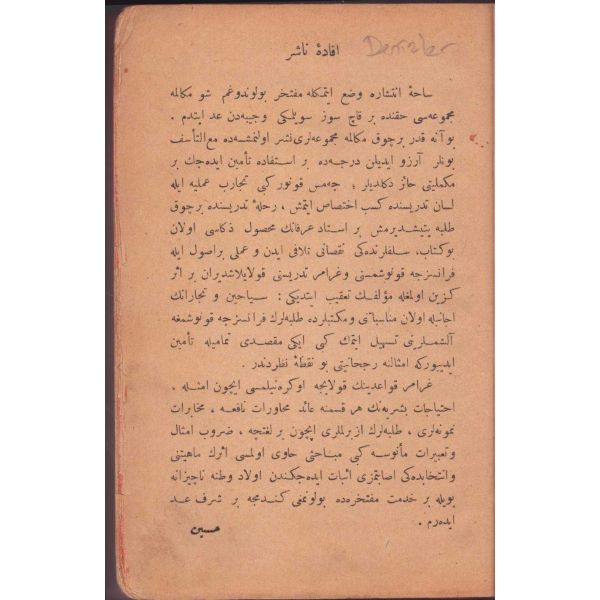 افادهٔ ناشر
Derrızler
ساحهٔ انتشاره وضع ایتمكله مفتخر بولوندوغم شو مكالمه
مجموعه‌سی حقنده بر قاچ سوز سویلمكی وجیبه‌دن عد ایتدم .
بو آنه قدر بر چوق مكالمه مجموعه‌لری نشر اولنمشسه‌ده مع التأسف
بونلر آرزو ایدیلن درجه‌ده بر استفاده تأمین ایده‌جك بر
مكملیتی حائز دكلدیلر ؛ جه‌مس قونور كبی تجارب عملیه ایله
لسان تدریسنده كسب اختصاص ایتمش ، رحلهٔ تدریسنده بر چوق
طلبه یتیشدیرمش بر استاد عرفانك محصول ذكاسی اولان
بو كتاب ، سلفلرنده‌كی نقصانی تلافی ایدن و عملی بر اصول ایله
فرانسزجه قونوشمنی و غرامر تدریسنی قولایلاشدیران بر اثر
كزین اولمغله مؤلفك تعقیب ایتدیكی : سیاحین و تجارانك
اجانبله اولان مناسباتی و مكتبلرده طلبه‌لرك فرانسزجه قونوشمغه
آلشملرینی تسهیل ایتمك كبی ایكی مقصدی تمامیله تأمین
ایدییوركه امثالنه رجحانیتی بو نقطهٔ نظردندر .
غرامر قواعدینك قولایجه اوكره‌نیلمسی ایچون امثله ،
احتیاجات بشریه‌نك هر قسمنه عائد محاورات نافعه ، مخابرات
نمونه‌لری ، طلبه‌لرك ازبرلملری ایچون بر لغتچه ، ضروب امثال
و تعبیرات مأنوسه كبی مباحثی حاوی اولمسی اثرك ماهیتنی
و انتخابده‌كی اصابتمزی اثبات ایده‌جكندن اولاد وطنه ناچیزانه
بویله بر خدمت مفتخره‌ده بولونمغی كندمجه بر شرف عد
ایده‌رم .
حسین